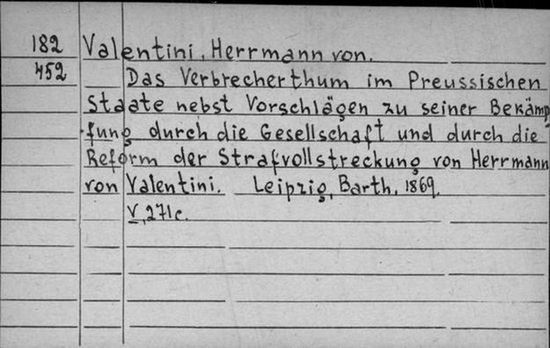 182 Valentini, Herrmann von.
452 Das Verbrecherthum im Preussischen
Staate nebst Vorschlägen zu seiner Bekämp
fung durch die Gesellschaft und durch die
Reform der Strafvollstreckung von Herrmann
von Valentini. Leipzig, Barth, 1869.
V, 271c.